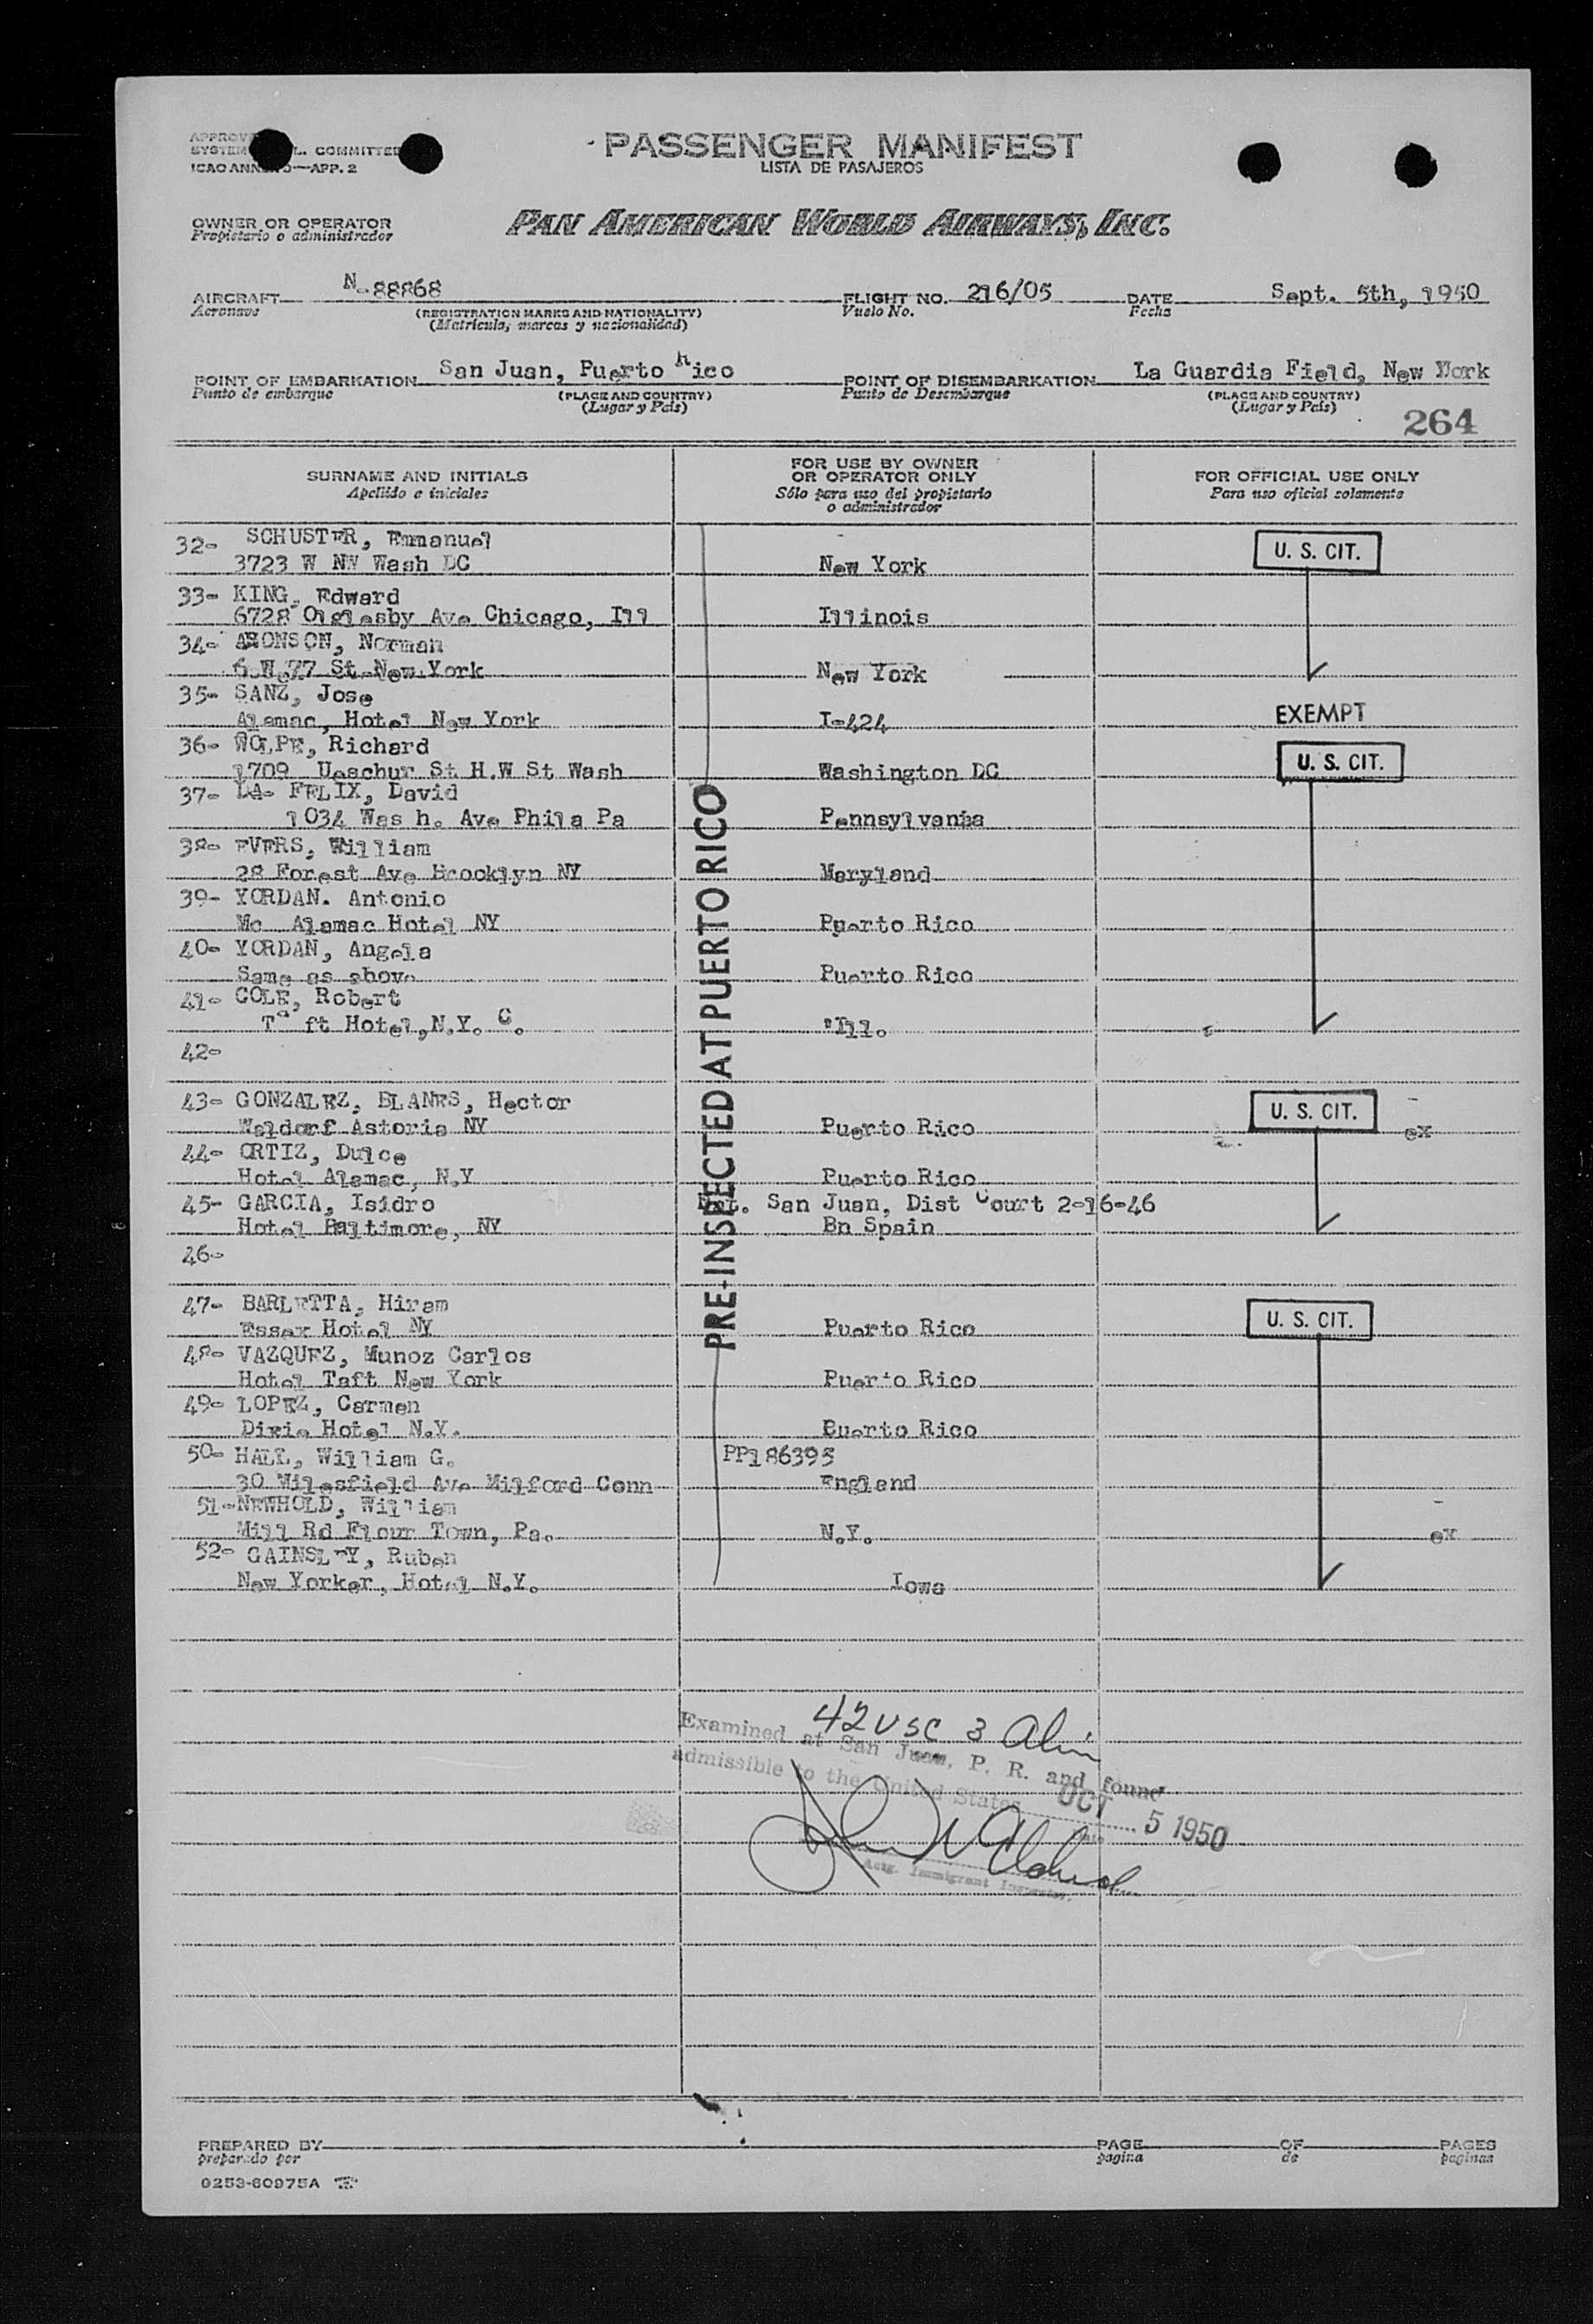 PASSENGER MANIFEST
LISTA DE PASAJEROS
L. COMMITTEE
APP. 2
OWNER OR OPERATOR
Propietario o administrador
PAN AMERICAN WORLD AIRWAYS, INC.
AIRCRAFT N-88868 FLIGHT NO. 216/05 DATE Sept. 5th, 1950
Aeronave (REGISTRATION MARKS AND NATIONALITY) Vuelo No. Fecha
(Matricula, marcas y nacionalidad)
POINT OF EMBARKATION San Juan, Puerto Rico POINT OF DISEMBARKATION La Guardia Field, New York
Punto de embarque (PLACE AND COUNTRY) Punto de Desembarque (PLACE AND COUNTRY)
(Lugar y País) (Lugar y País)
264
SURNAME AND INITIALS FOR USE BY OWNER OR OPERATOR ONLY FOR OFFICIAL USE ONLY
Apellido e iniciales Sólo para uso del propietario o administrador Para uso oficial solamente
32- SCHUSTER, Emmanuel U. S. CIT.
3723 W NW Wash DC New York
33- KING, Edward
6728 Oglesby Ave Chicago, Ill Illinois
34- ARONSON, Norman
6 W 77 St New York New York
35- SANZ, Jose
Alamac, Hotel New York I-424 EXEMPT
36- WOLPE, Richard U. S. CIT.
1709 Ueschur St H.W St Wash Washington DC
37- DA- FELIX, David
1034 Was h. Ave Phila Pa Pennsylvania
38- EVERS, William
28 Forest Ave Brooklyn NY Maryland
39- YORDAN. Antonio
Mc Alamac Hotel NY Puerto Rico
40- YORDAN, Angela
Same as above Puerto Rico
41- COLE, Robert
Taft Hotel, N.Y. C. Ill.
42-
43- GONZALEZ, BLANES, Hector U. S. CIT.
Waldorf Astoria NY Puerto Rico ex
44- ORTIZ, Dulce
Hotel Alamac, N.Y Puerto Rico
45- GARCIA, Isidro San Juan, Dist Court 2-16-46
Hotel Baltimore, NY Bn Spain
46-
47- BARLETTA, Hiram U. S. CIT.
Essex Hotel NY Puerto Rico
48- VAZQUEZ, Munoz Carlos
Hotel Taft New York Puerto Rico
49- LOPEZ, Carmen
Dixie Hotel N.Y. Puerto Rico
50- HALL, William G. PP186395
30 Milesfield Ave Milford Conn England
51- NEWHOLD, William
Mill Rd Flour Town, Pa. N.Y. ex
52- GAINSLEY, Ruben
New Yorker, Hotel N.Y. Iowa
PRE-INSPECTED AT PUERTO RICO
42 USC 3 Alin
Examined at San Juan, P. R. and found
admissible to the United States OCT 5 1950
Actg. Immigrant Inspector.
PREPARED BY PAGE OF PAGES
preparado por pagina de paginas
0253-60975A